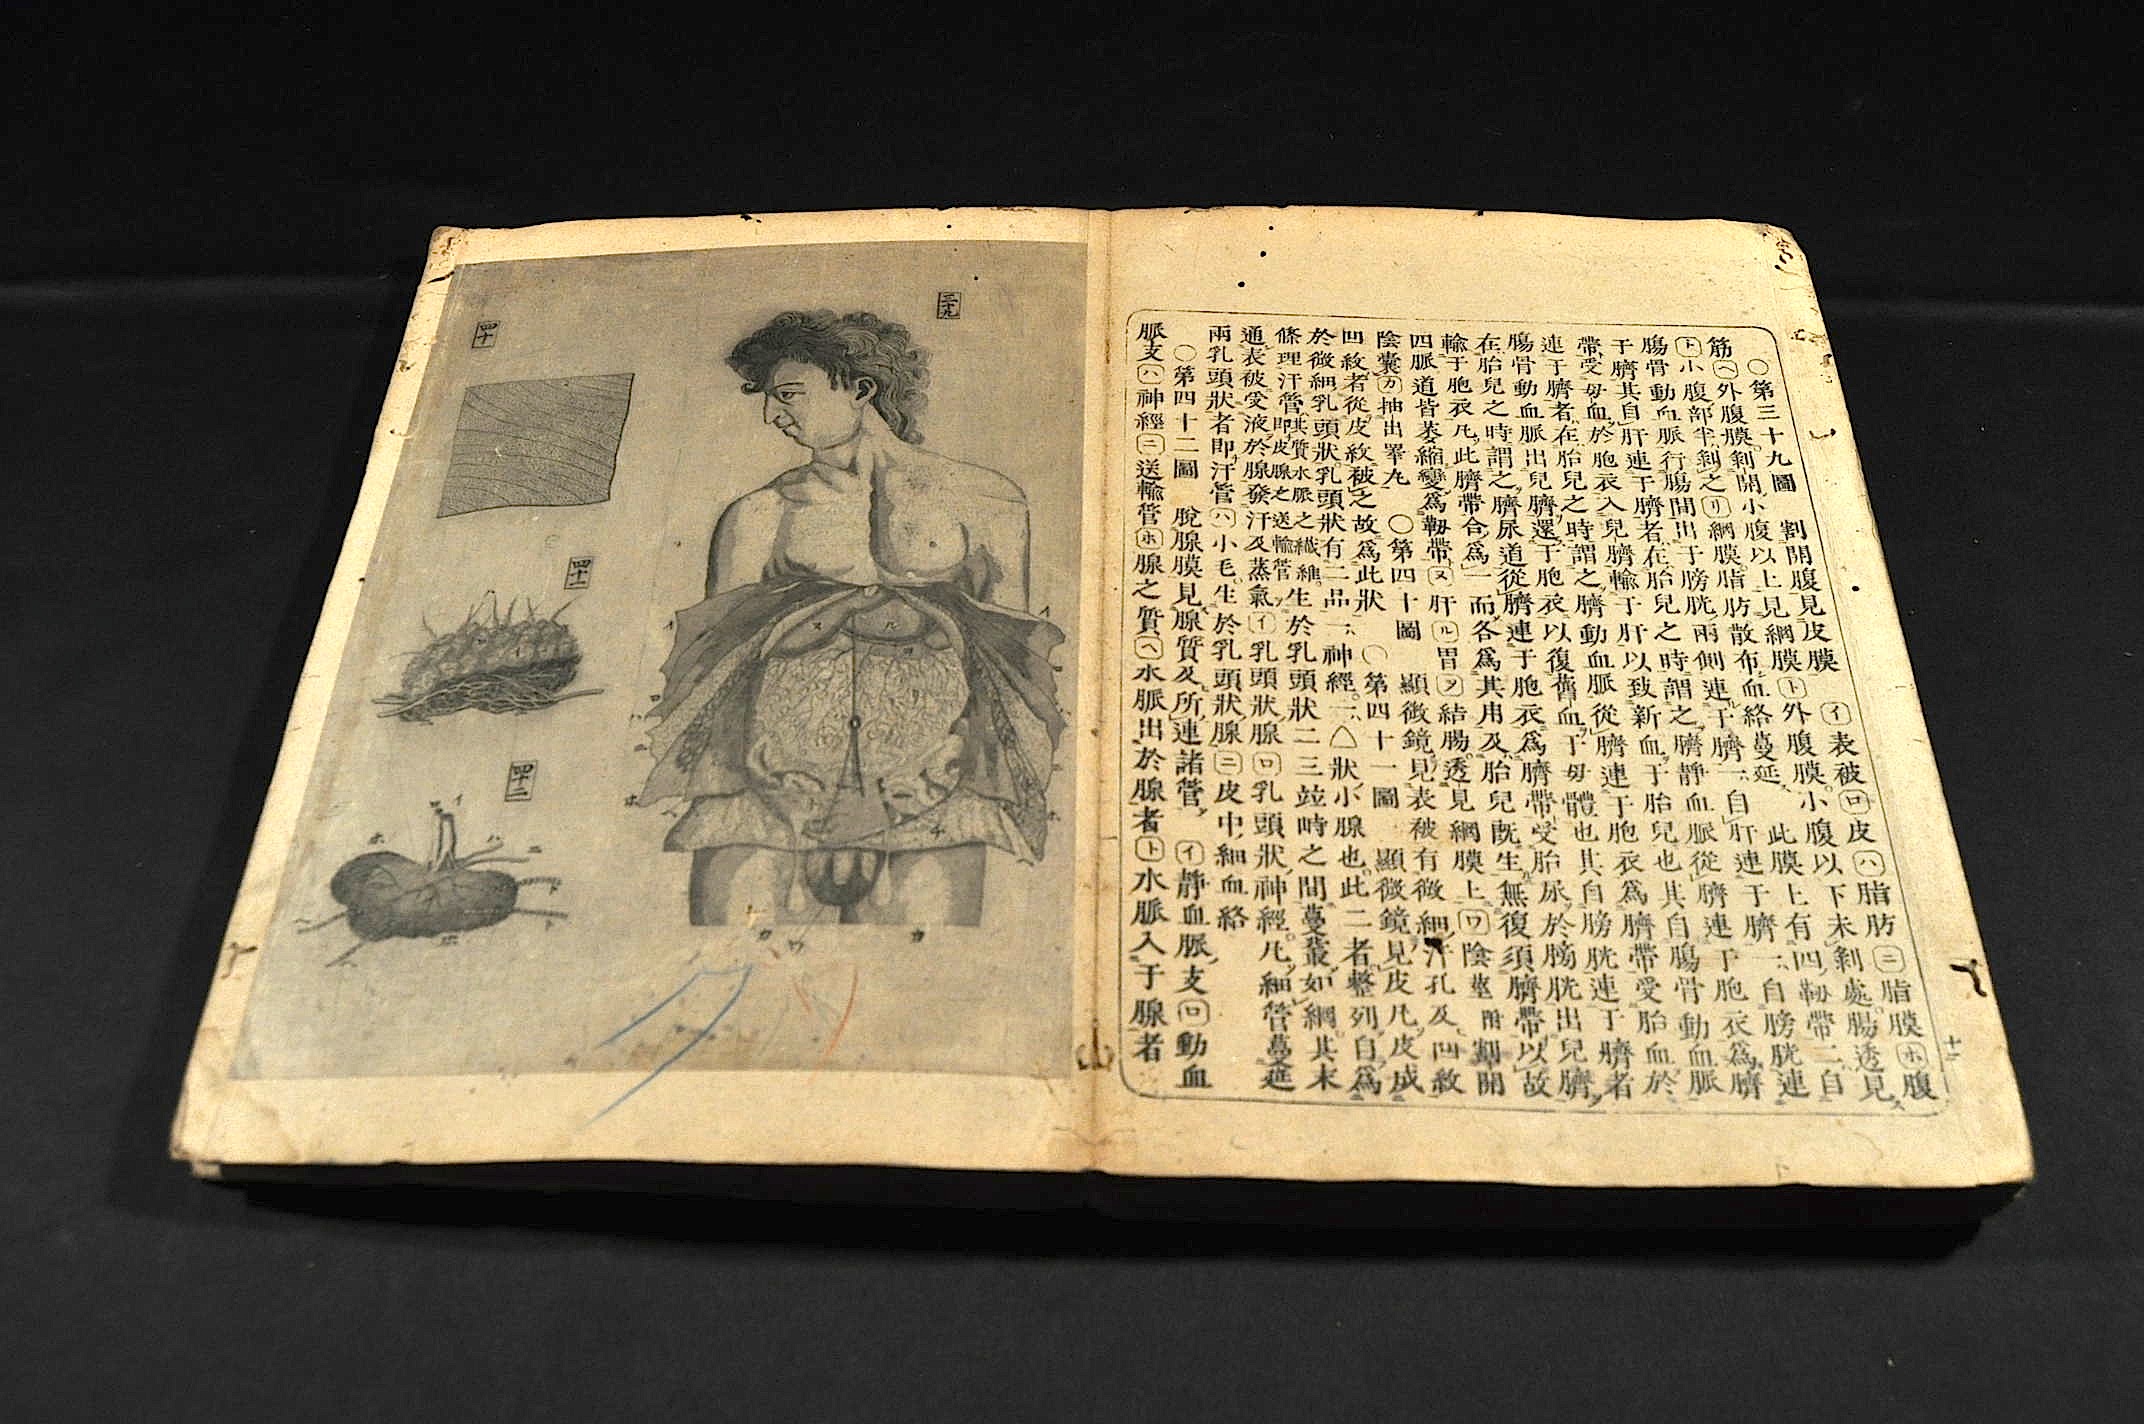 〇第三十九圖 割開腹見皮膜 ㋑表被㋺皮㋩脂肪㋥脂膜㋭腹
筋㋬外腹膜。剝開小腹以上見網膜㋣外腹膜。小腹以下未剝處。腸透見
㋣小腹部半剝之㋷網膜。脂肪散布血絡蔓延。 此膜上有四韌帶二自
腸骨動血脈行腸間出于膀胱兩側連于臍一自肝連于臍一自膀胱連
于臍其自肝連于臍者在胎兒之時謂之臍靜血脈從臍連于胞衣爲臍
帶受母血於胞衣入兒臍輸于肝以致新血于胎兒也其自腸骨動血脈
連于臍者在胎兒之時謂之臍動血脈從臍連于胞衣爲臍帶受胎血於
腸骨動血脈出兒臍還于胞衣以復舊血于母體也其自膀胱連于臍者
在胎兒之時謂之臍尿道從臍連于胞衣爲臍帶受胎尿於膀胱出兒臍
輸于胞衣凡此臍帶合爲一而各爲其用及胎兒既生無復須臍帶以故
四脈道皆萎縮變爲韌帶㋦肝㋸胃㋾結腸透見網膜上㋻陰莖 附割開
陰囊㋕抽出睪丸 〇第四十圖 顯微鏡見表被有微細汗孔及凹紋
凹紋者從皮紋被之故爲此狀 〇第四十一圖 顯微鏡見皮凡皮成
於微細乳頭狀乳頭狀有二品一神經一△狀小腺也此二者整列自爲
條理汗管即皮腺之送輸管其質水脈之纖維生於乳頭狀二三竝時之間蔓叢如網其末
通表被受液於腺發汗及蒸氣㋑乳頭狀腺㋺乳頭狀神經凡細管蔓延
兩乳頭狀者即汗管㋩小毛生於乳頭狀腺㋥皮中細血絡
〇第四十二圖 脫腺膜見腺質及所連諸管 ㋑靜血脈支㋺動血
脈支㋩神經㋥送輸管㋭腺之質㋬水脈出於腺者㋣水脈入于腺者
十二
三十九
四十
四十一
四十二